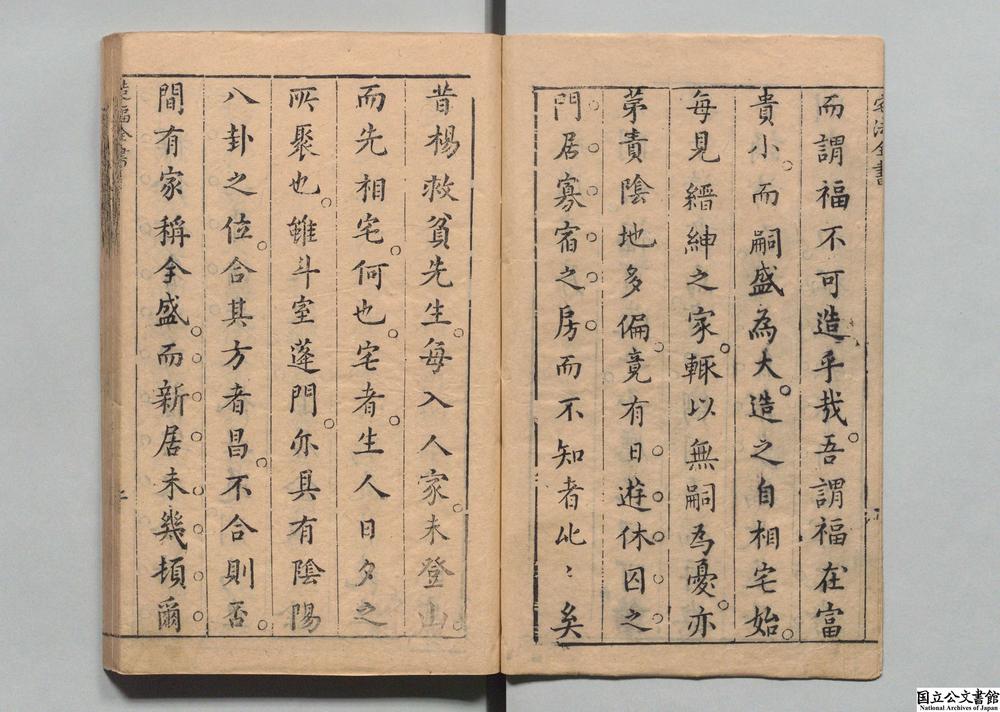 而謂福不可造乎哉。吾謂福在富
貴小。而嗣盛為大。造之自相宅始。
每見縉紳之家。輙以無嗣為憂。亦
苐責陰地多偏。竟有日遊休囚之
門居寡宿之房而不知者此〻矣
昔楊救貧先生。每入人家。未登山。
而先相宅。何也。宅者。生人日夕之
所聚也。雖斗室蓬門。亦具有陰陽
八卦之位。合其方者昌。不合則否。
間有家稱全盛。而新居未幾頓爾
国立公文書館
National Archives of Japan